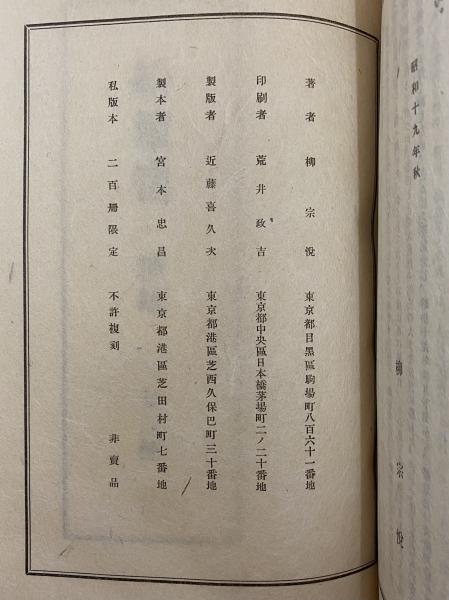 昭和十九年秋
柳宗悦
著者 柳宗悅 東京都目黑區駒場町八百六十一番地
印刷者 荒井政吉 東京都中央區日本橋茅場町二ノ二十番地
製版者 近藤喜久次 東京都港區芝西久保巴町三十番地
製本者 宮本忠昌 東京都港區芝田村町七番地
私版本 二百册限定 不許複刻 非賣品